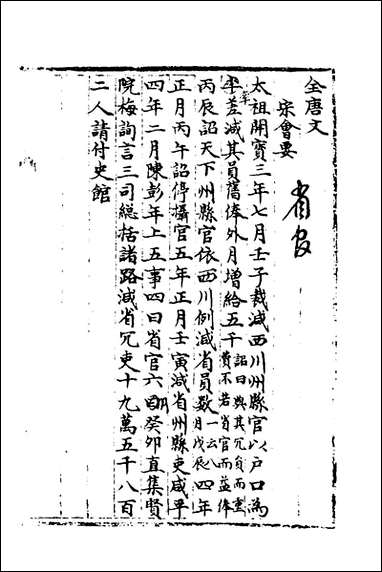 全唐文
宋會要
省官
太祖開寶三年七月壬子裁減西川州縣官以戶口為
率差減其員舊俸外月增給五千詔曰與其冗負而重費不若省官而益俸
丙辰詔天下州縣官依西川例減省員數一云八月戊辰四年
正月丙午詔停攝官五年正月壬寅減省州縣吏咸平
四年二月陳彭年上五事四曰省官六月癸卯直集賢
院梅詢言三司總括諸路減省冗吏十九萬五千八百
二人請付史館